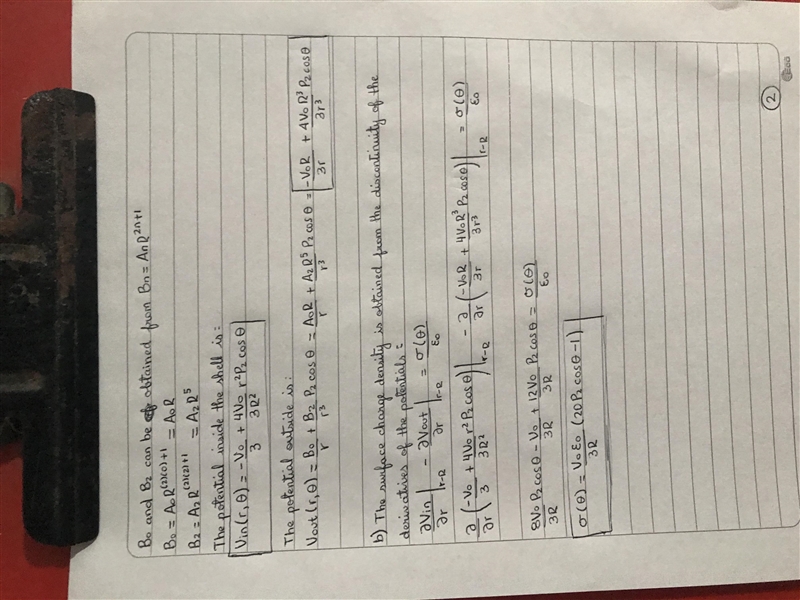 B0 and B2 can be obtained from Bn = AnR^2n+1
B0 = A0R^(2)(0)+1 = A0R
B2 = A2R^(2)(2)+1 = A2R^5
The potential inside the shell is:
Vin(r, θ) = -V0/3 + 4V0/3R^2 r^2P2 cos θ
The potential outside is:
Vout(r, θ) = B0/r + B2/r^3 P2 cos θ = A0R/r + A2R^5/r^3 P2 cos θ = -V0R/3r + 4V0R^3/3r^3 P2 cos θ
b) The surface charge density is obtained from the discontinuity of the
derivatives of the potentials:
∂Vin/∂r |r-R - ∂Vout/∂r |r-R = σ(θ)/ε0
∂/∂r (-V0/3 + 4V0/3R^2 r^2P2 cos θ)|r-R - ∂/∂r (-V0R/3r + 4V0R^3/3r^3 P2 cos θ)|r-R = σ(θ)/ε0
8V0/3R P2 cos θ - V0/3R + 12V0/3R P2 cos θ = σ(θ)/ε0
σ(θ) = V0ε0/3R (20P2 cos θ - 1)
2